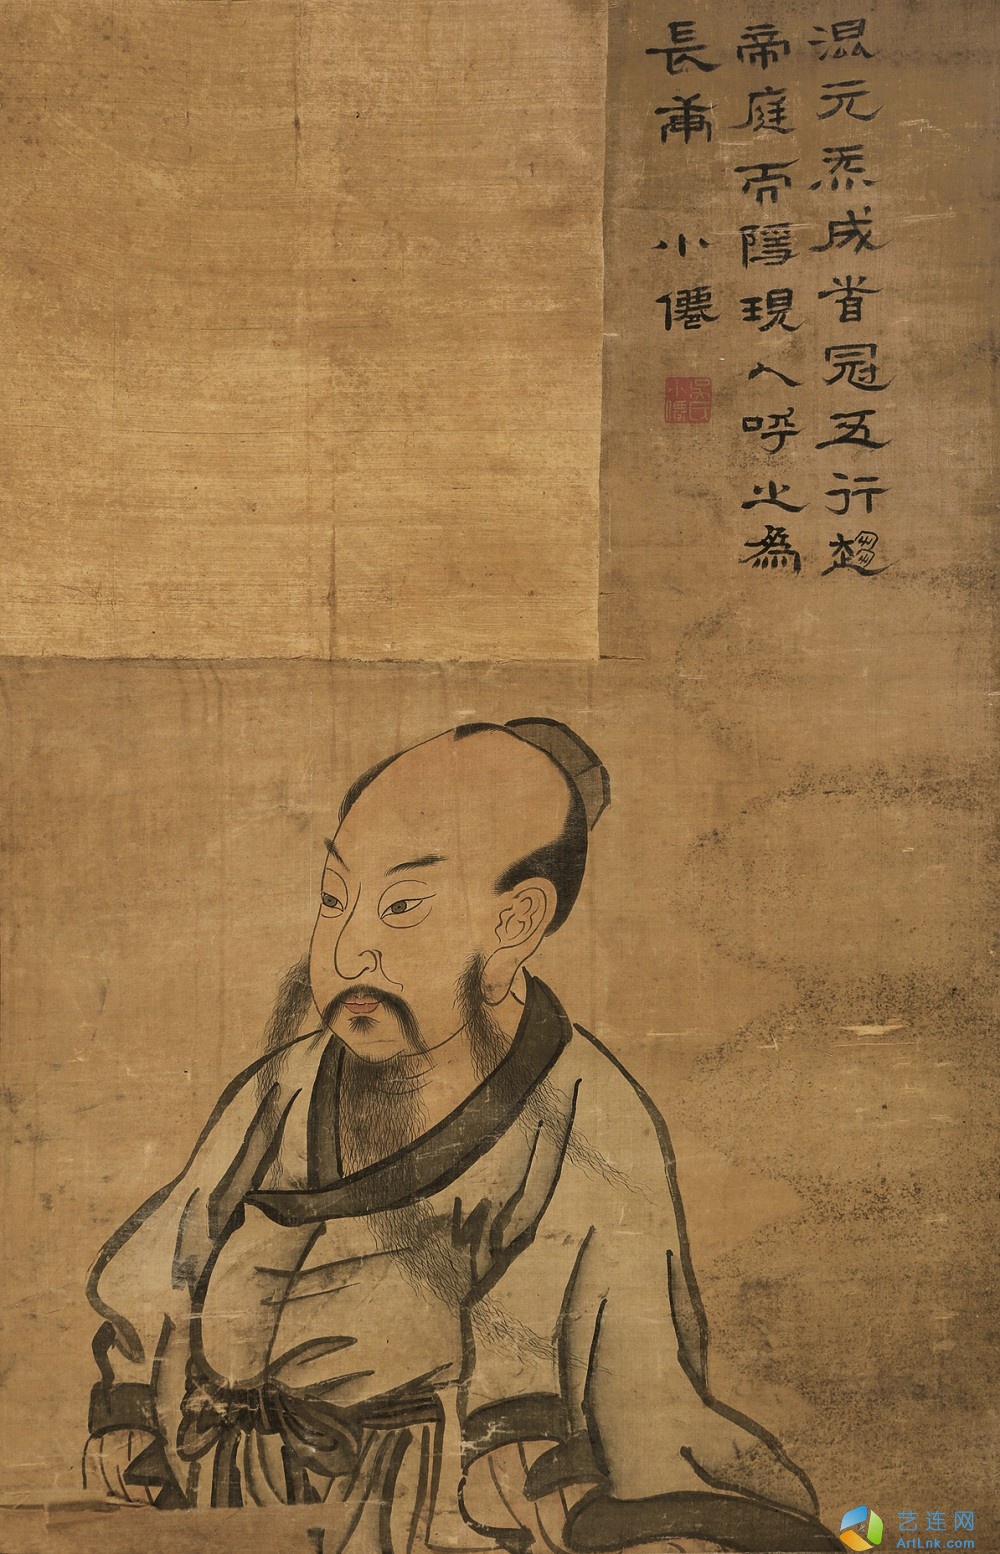 混元炁成首冠五行趨
帝庭而隱現人呼之為
長庚 小僊
吳氏小僊
艺连网
ArtLnk.com